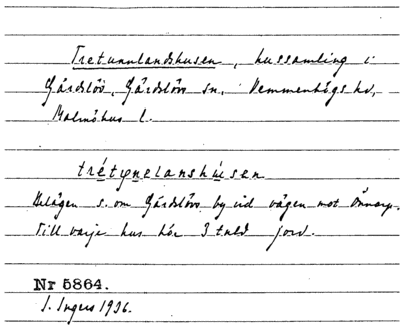 Tretunnlandshusen, hussamling i
Gärdslöv, Gärdslövs sn, Vemmenhögs hd,
Malmöhus l.
trétųnelanshúsen
Belägen s. om Gärdslövs by vid vägen mot Önnarp.
Till varje hus hör 3 tnld jord.
Nr 5864.
I. Ingers 1936.